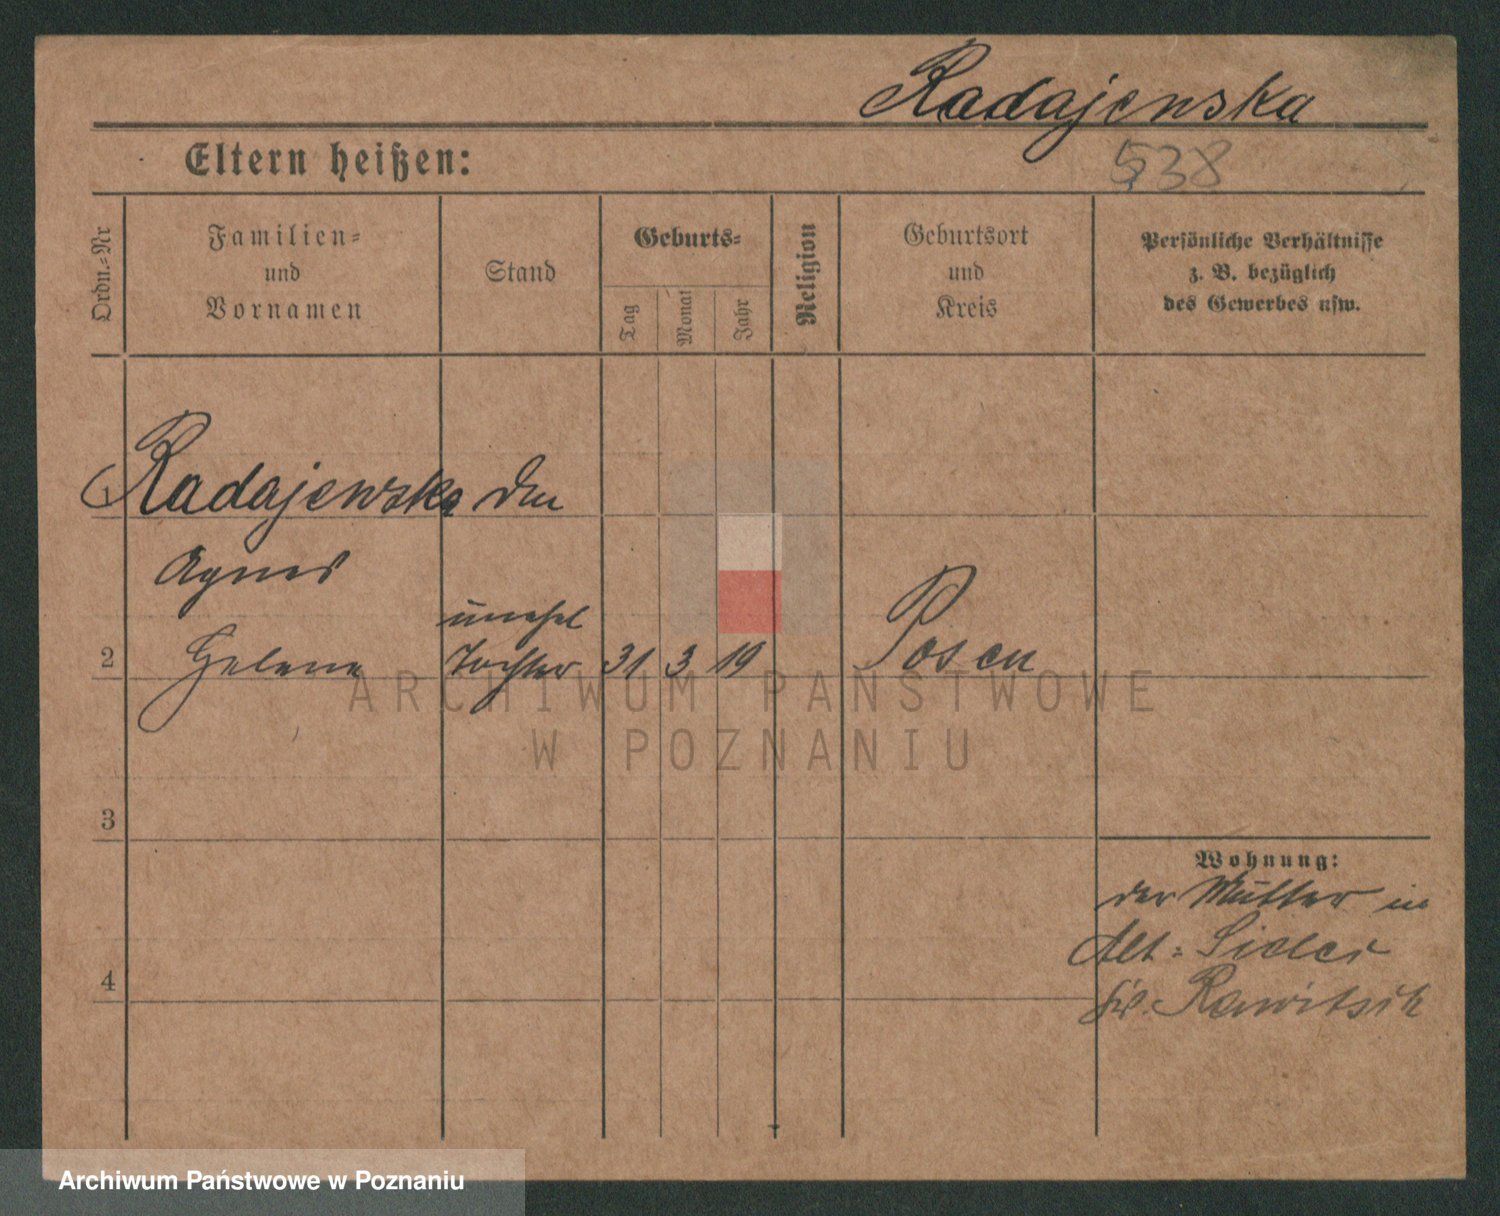 Radajewska
538
Eltern heißen:
Ordn.-Nr
Familien-
und
Vornamen
Stand
Geburts-
Tag
Monat
Jahr
Religion
Geburtsort
und
Kreis
Persönliche Verhältnisse
z. B. bezüglich
des Gewerbes usw.
1 Radajewska
Agnes
unehel
2 Helene Tochter 31 3 19 Posen
ARCHIWUM PAŃSTWOWE
W POZNANIU
3
Wohnung:
der Mutter in
Alt-
4
Rawitsch
Archiwum Państwowe w Poznaniu